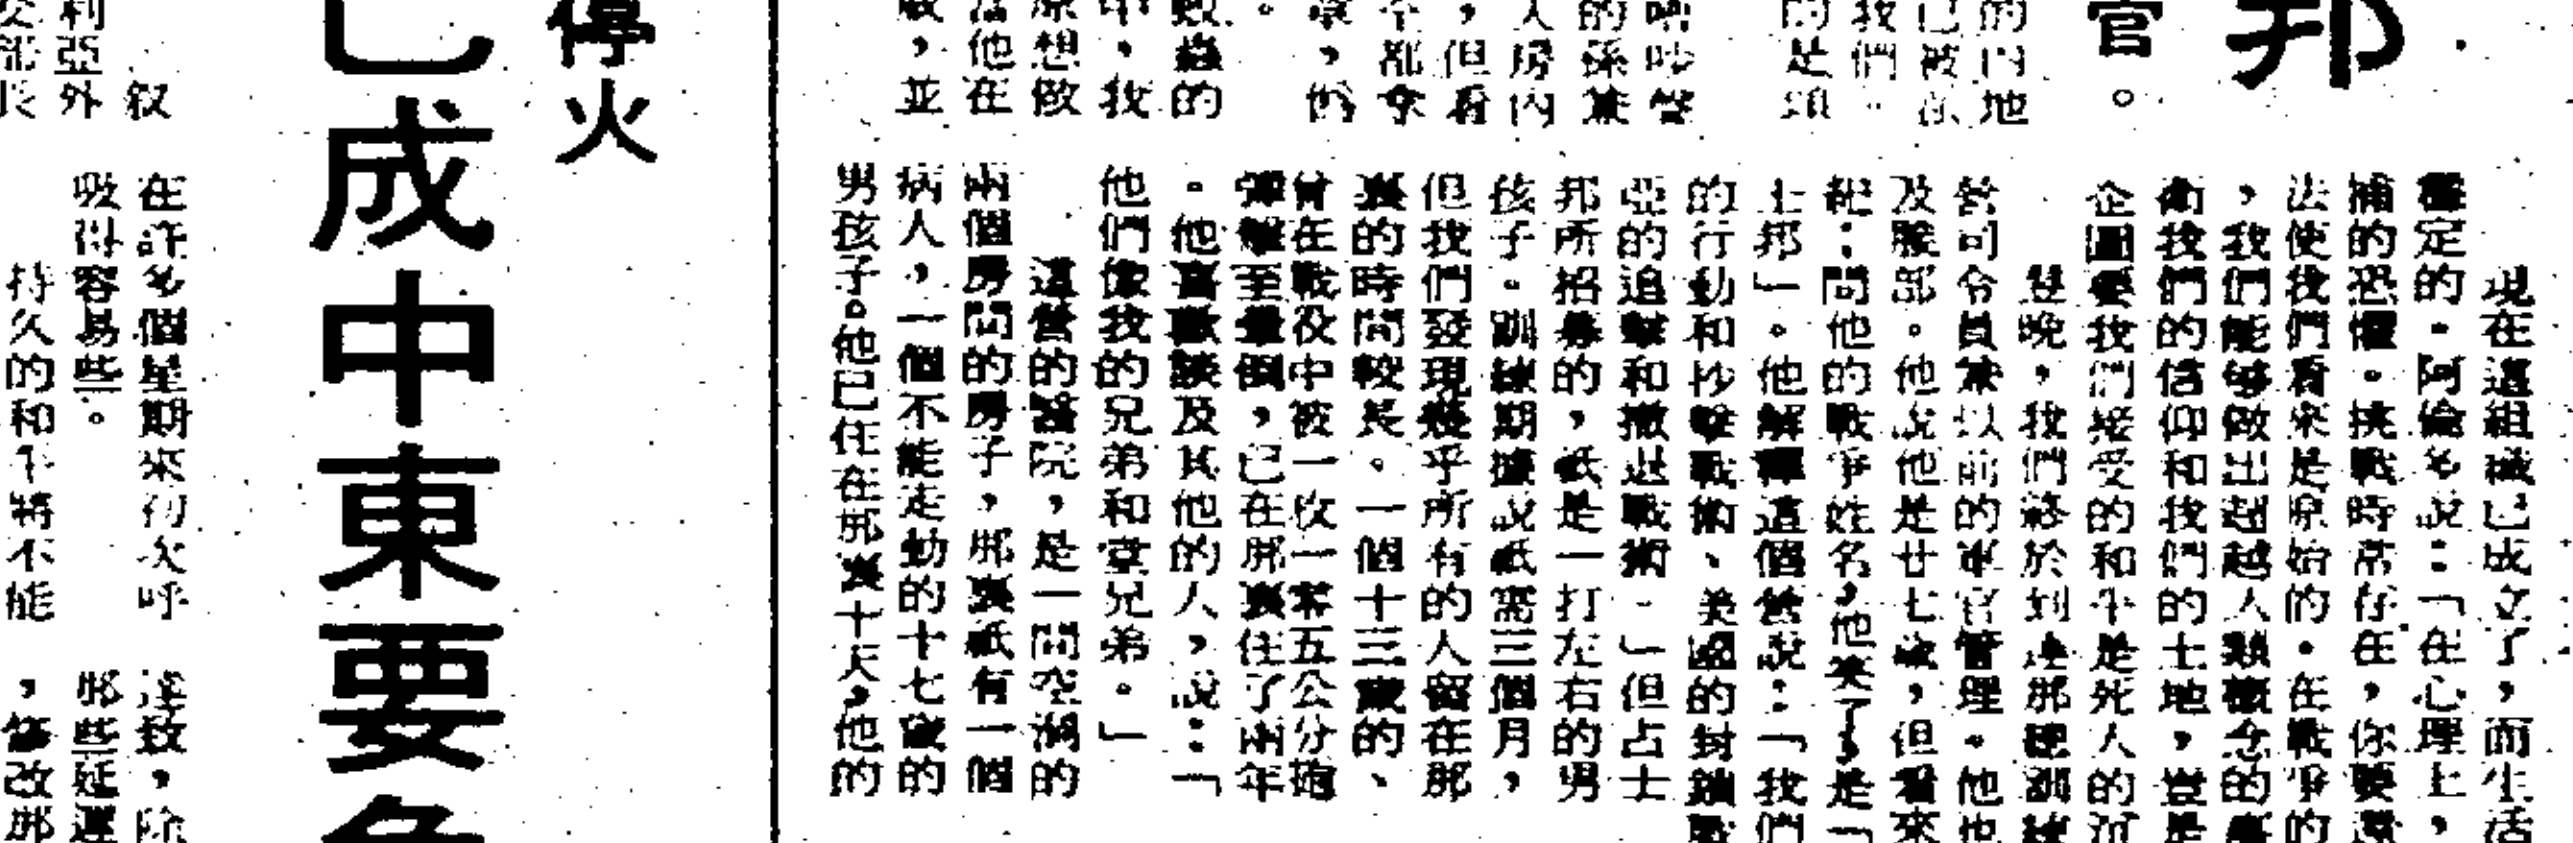 邦
官。
的門地
已被
我們。
的是
聲
的孫兼
人房內
，但看
不都拿
。
的
中，我
原想做
當他在
，並
現在這組織已成立了，而生活
穩定的。阿倫多說：「在心理上，
補的恐懼。挑戰時常存在，你要
法使我們看來是原始的。在戰爭的
，我們能够做出超越人類概念的事
衛我們的信仰和我們的土地，豈是
企圖要我們接受的和平是死人的沉
是晚，我們終於到達那總訓練
營司令員兼以前的軍官管理。他也
及腰部。他說他是廿七歲，但看來
靶：問他的戰爭姓名，他笑了，是「
士邦」。他解釋這個營說：「我們
的行動和抄擊戰術、美國的封鎖戰
亞的追擊和撤退戰術。」但占士
邦所招募的，祇是一打左右的男
孩子。訓練期據說祇需三個月，
但我們發現幾乎所有的人留在那
裏的時間較長。一個十三歲的、
曾在戰役中被一枚一零五公分砲
彈擊至暈倒，已在那裏住了兩年
。他喜歡談及其他的人，說：「
他們像我的兄弟和堂兄弟。」
這營的醫院，是一間空濶的
兩個房間的房子，那裏祇有一個
病人，一個不能走動的十七歲的
男孩子。他已住在那裏十天，他的
停火
已成中東要
叙
利亞外
交部長
在許多個星期來初次呼
吸得容易些。
持久的和平將不能
達致，除
那些延遲
，修改那